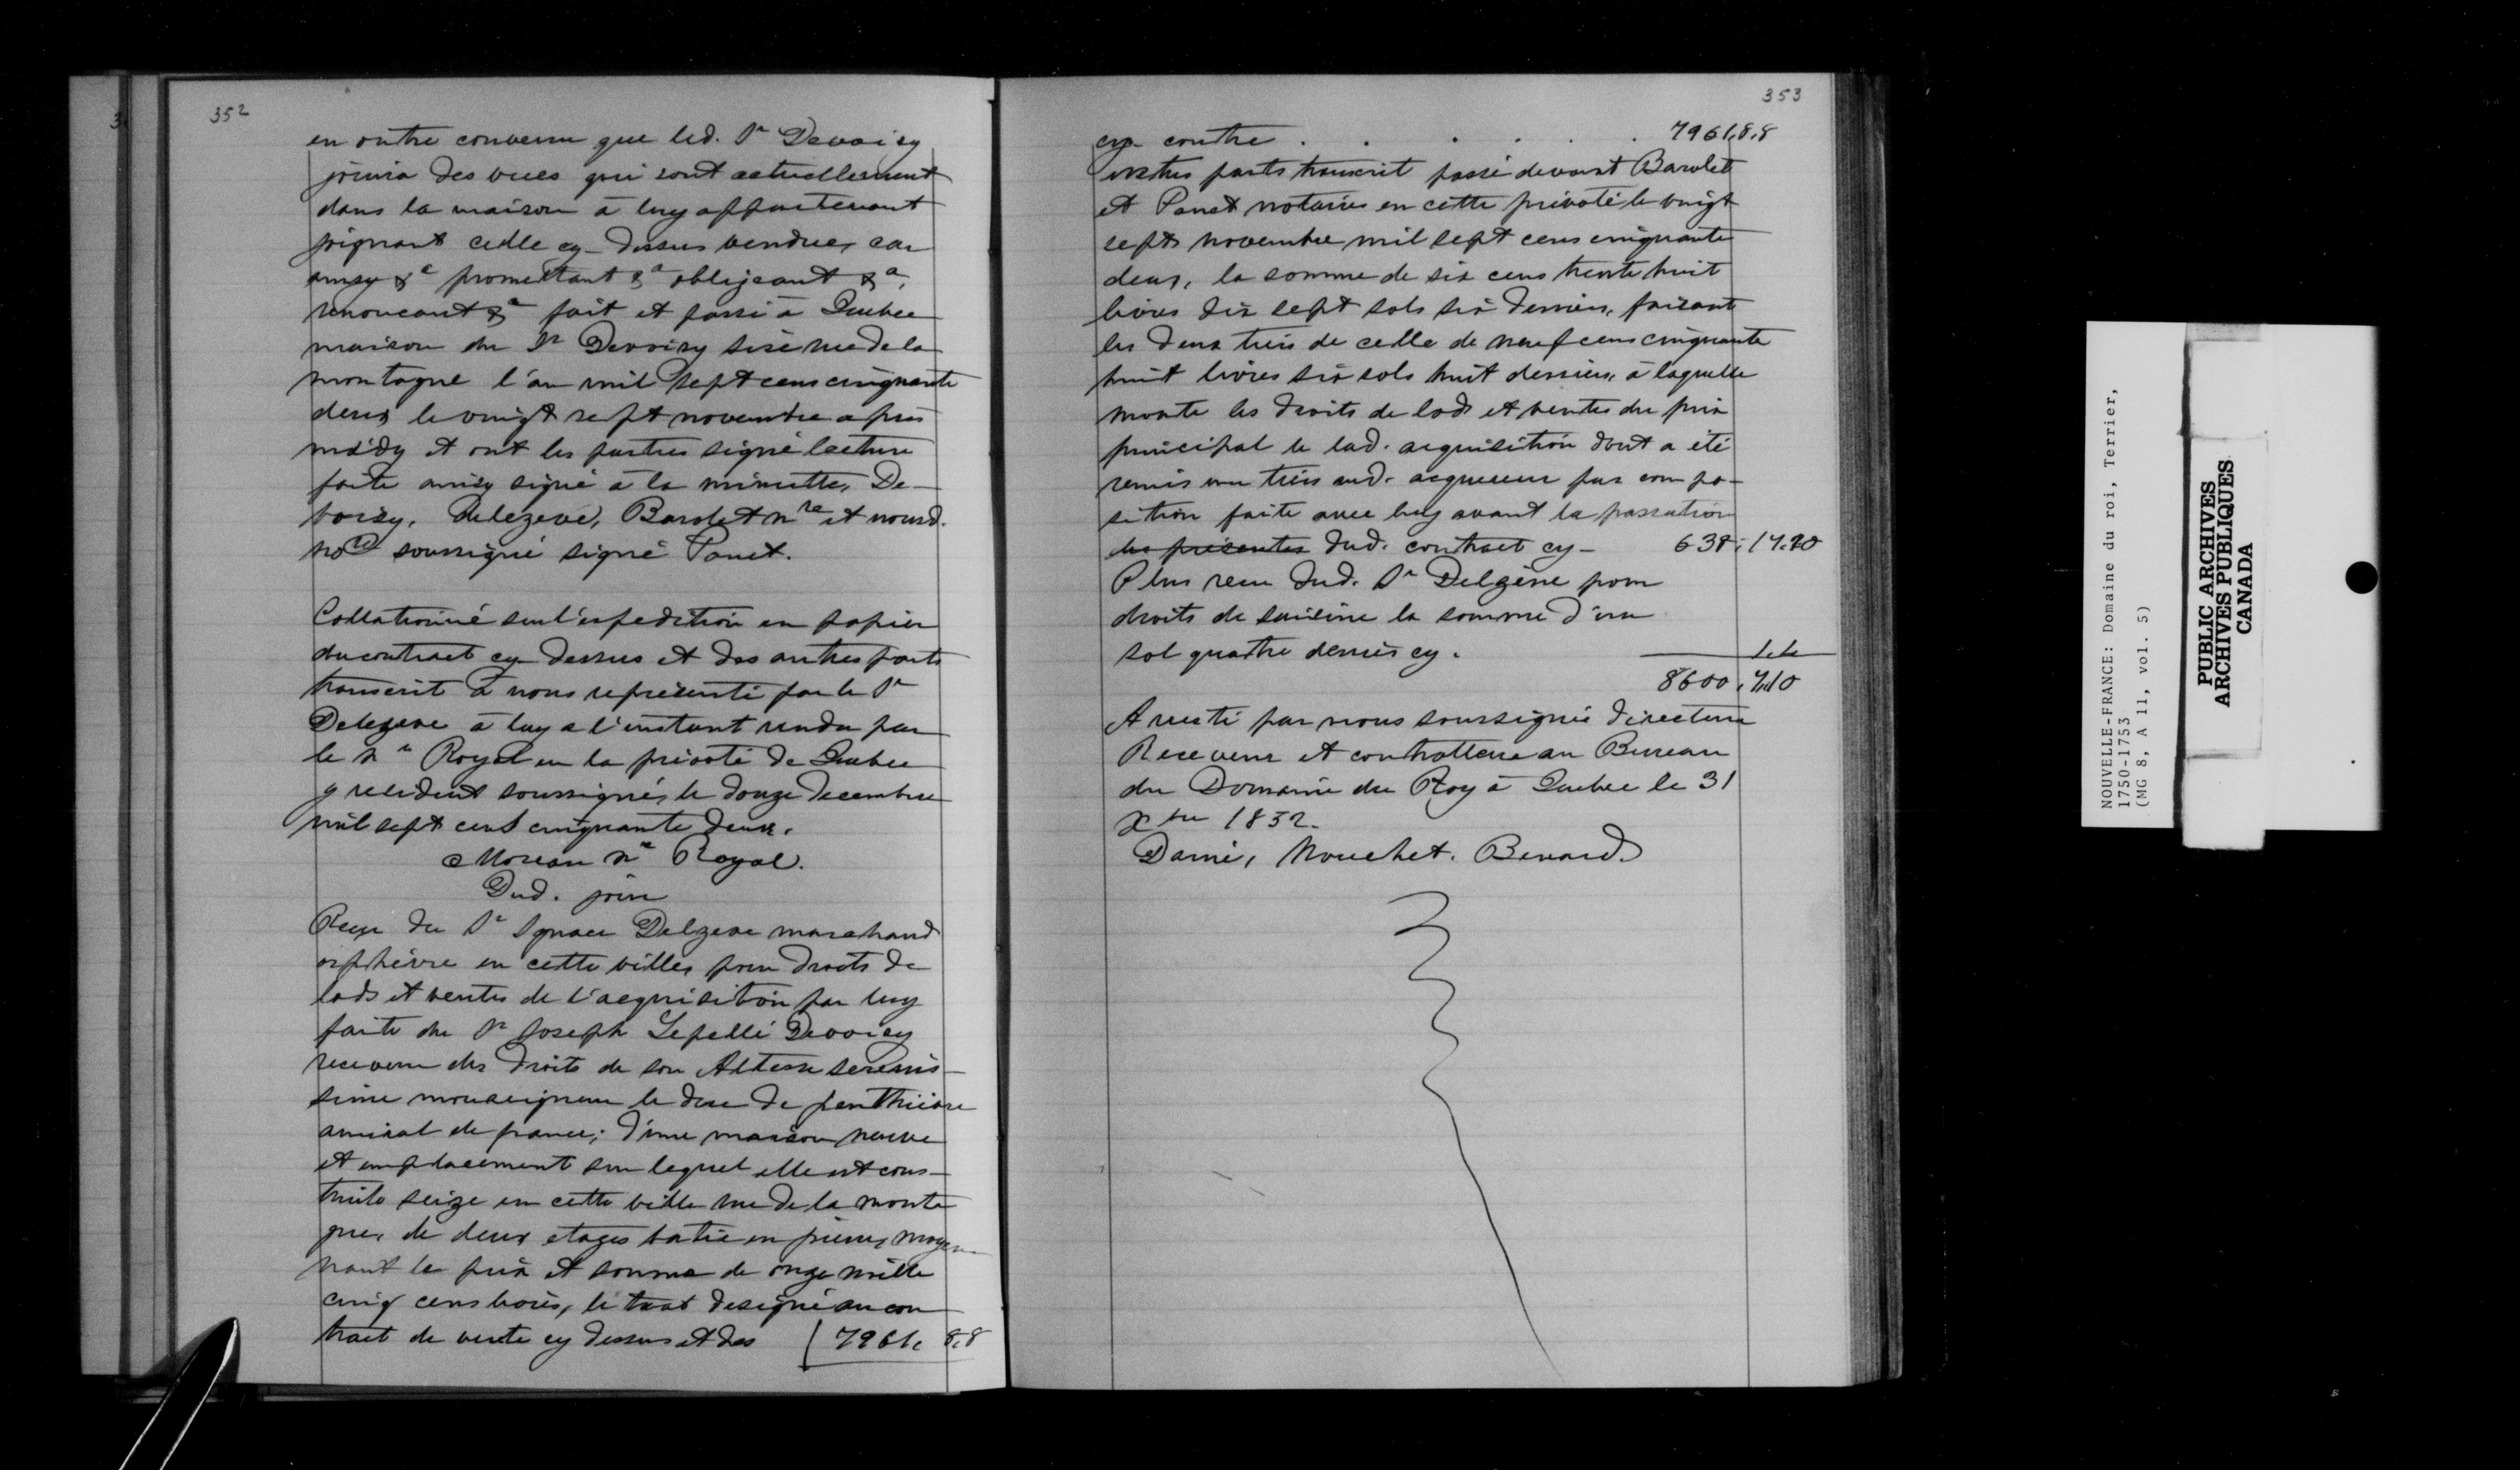 352
en outre convenu que led. Sr Devoisy
jouira des vues qui sont actuellement
dans la maison à luy appartenant
joignant celle cy-dessus vendue, car
ainsy &a promettant &a obligeant &a,
renonceant &a fait et passé à Quebec
maison du Sr Devoisy sise rue de la
montagne l'an mil sept cens cinquante
deux le vingt sept novembre après
midy et ont les parties signé lecture
faite ainsy signé à la minutte, De-
voisy, Delezeve, Barolet nre et nousd.
nore soussigné signé Panet.
Collationné sur l'expedition en papier
du contract cy-dessus et des autres parts
transcrit à nous representé par le Sr
Delezeve à luy a l'instant rendu par
le nre Royal en la prévoté de Quebec
y résident soussigné, le douze decembre
mil sept cent cinquante deux.
Moreau nre Royal.
Dud. jour
Reçu du Sr Ignace Delzeve marchand
orphèvre en cette ville, pour droits de
lods et ventes de l'acquisition par luy
faite du Sr Joseph Lepellé Devoisy
receveur des droits de son Altesse serenis-
sime monseigneur le duc de penthièvre
amiral de france; d'une maison neuve
et emplacement sur lequel elle est cons-
truite seize en cette ville rue de la monta
gne, de deux etages batie en pierre, moyen-
nant le prix et somme de onze mille
cinq cens livres, le tout designé au con
tract de vente cy dessus et des 7961. 8.8
353
cy-contre . . . . . 7961.8.8
autres parts transcrit passé devant Barolet
et Panet notaires en cette prévoté le vingt
sept novembre mil sept cens cinquante
deux, la somme de six cens trente huit
livres dix sept sols six deniers, faisant
les deux tiers de celle de neuf cens cinquante
huit livres six sols huit deniers, à laquelle
monte les droits de lods et ventes du prix
principal de lad. acquisition dont a été
remis un tiers aud. acquereur par compo-
sition faite avec luy avant la passation
des présentes dud. contract cy- 638.17.10
Plus reçu dud. Sr Delzène pour
droits de saisine la somme d'un
sol quatre deniers cy. 1.4
8600.7.10
Arresté par nous soussignés directeur
Receveur et controlleur au Bureau
du Domaine du Roy à Quebec le 31
Xbre 1832.
Damé, Nouchet. Benard.
NOUVELLE-FRANCE: Domaine du roi, Terrier,
1750-1753
(MG 8, A 11, vol. 5)
PUBLIC ARCHIVES
ARCHIVES PUBLIQUES
CANADA